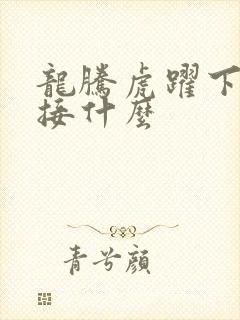 龍騰虎躍下
接什麼
青兮顏